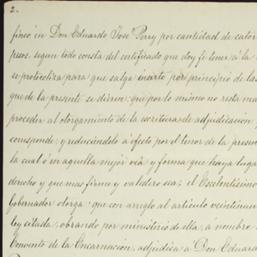 2.
fincó en Don Eduardo José Perry por cantidad de cator
pesos, segun todo consta del certificado que doy fé tener á la
se protocoliza para que salga inserto por principio de las
que de la presente se dieren; que por lo mismo no resta mas
proceder al otorgamiento de la escritura de adjudicacion
corresponde; y reduciéndolo á efecto por el tenor de la presen
la cual ó en aquella mejor via y forma que haya lugar
derecho y que mas firme y valedero sea; el Escelentísimo
Gobernador otorga: que con arreglo al artículo veintiuno
ley citada, obrando por ministerio de ella, á nombre
Convento de la Encarnacion, adjudica á Don Eduardo